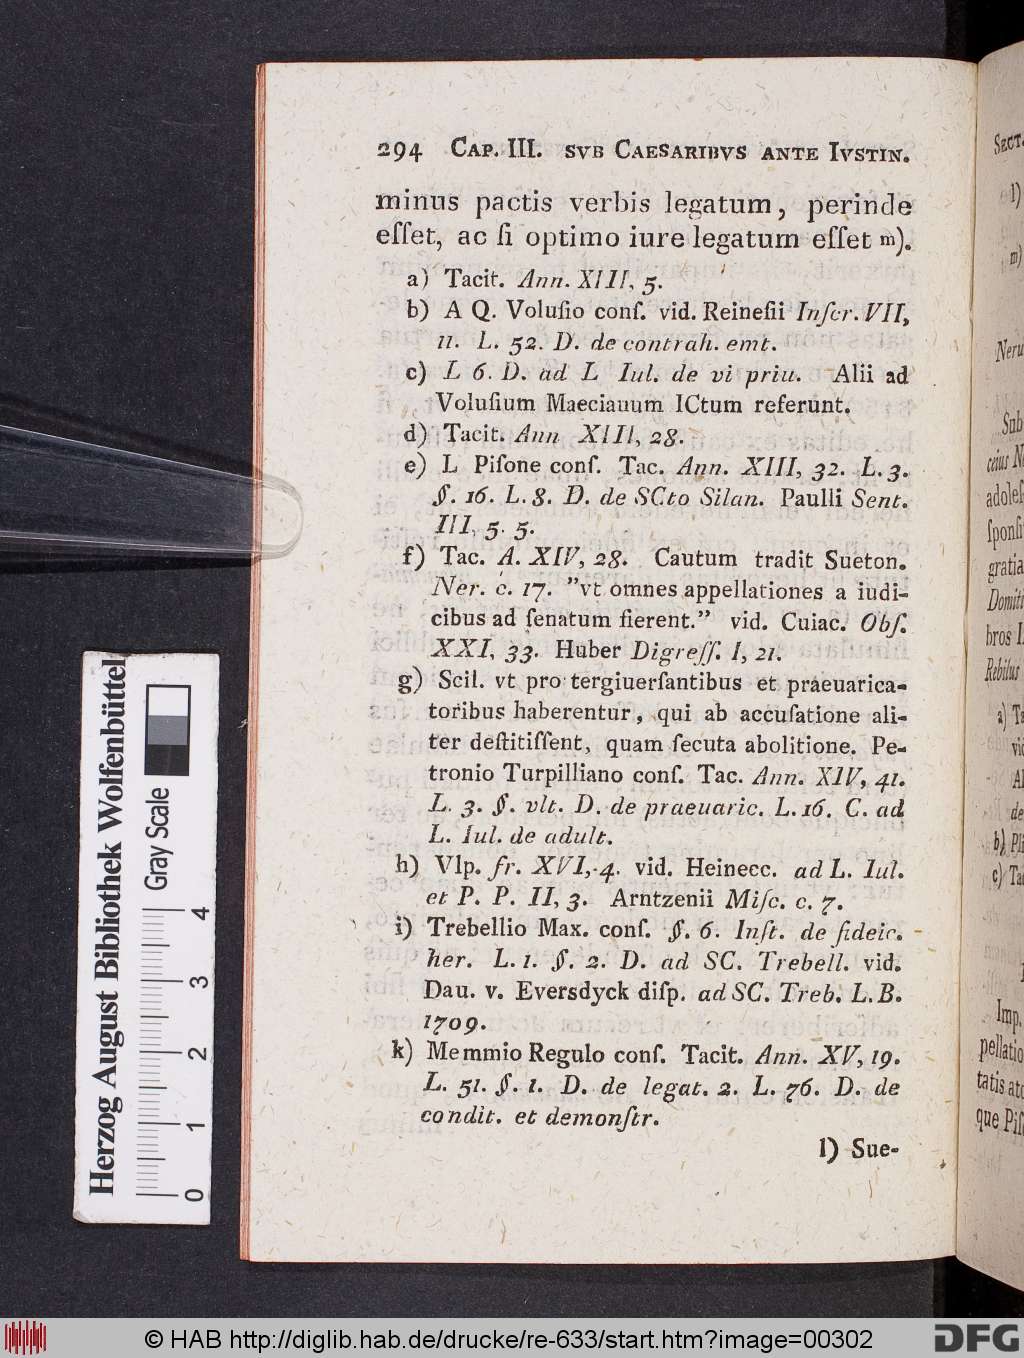 294 CAP. III. SVB CAESARIBVS ANTE IVSTIN.
minus pactis verbis legatum, perinde
eſſet, ac ſi optimo iure legatum eſſet m).
a) Tacit. Ann. XIII, 5.
b) A Q. Voluſio conſ. vid. Reineſii Inſcr. VII,
11. L. 52. D. de contrah. emt.
c) L 6. D. ad L Iul. de vi priu. Alii ad
Voluſium Maecianum ICtum referunt.
d) Tacit. Ann XIII, 28.
e) L Piſone conſ. Tac. Ann. XIII, 32. L. 3.
§. 16. L. 8. D. de SCto Silan. Paulli Sent.
III, 5. 5.
f) Tac. A. XIV, 28. Cautum tradit Sueton.
Ner. c. 17. ”vt omnes appellationes a iudi-
cibus ad ſenatum fierent.” vid. Cuiac. Obſ.
XXI, 33. Huber Digreſſ. I, 21.
g) Scil. vt pro tergiuerſantibus et praeuarica-
toribus haberentur, qui ab accuſatione ali-
ter deſtitiſſent, quam ſecuta abolitione. Pe-
tronio Turpilliano conſ. Tac. Ann. XIV, 41.
L. 3. §. vlt. D. de praeuaric. L. 16. C. ad
L. Iul. de adult.
h) Vlp. fr. XVI, 4. vid. Heinecc. ad L. Iul.
et P. P. II, 3. Arntzenii Miſc. c. 7.
i) Trebellio Max. conſ. §. 6. Inſt. de fideic.
her. L. 1. §. 2. D. ad SC. Trebell. vid.
Dau. v. Eversdyck diſp. ad SC. Treb. L. B.
1709.
k) Memmio Regulo conſ. Tacit. Ann. XV, 19.
L. 51. §. 1. D. de legat. 2. L. 76. D. de
condit. et demonſtr.
l) Sue-
SECT.
l)
m)
Sub
a)
b) Pli
c)
Imp.
Herzog August Bibliothek Wolfenbüttel
Gray Scale
0 1 2 3 4
© HAB http://diglib.hab.de/drucke/re-633/start.htm?image=00302
DFG